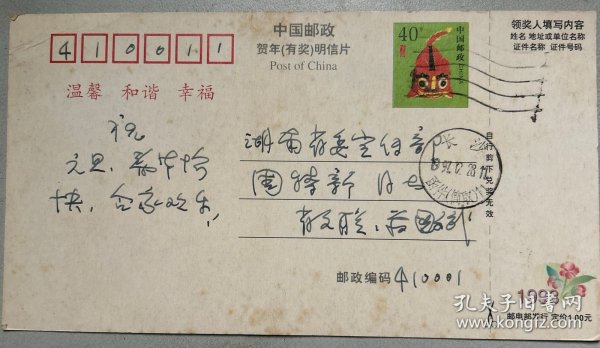 410011
中国邮政
贺年(有奖)明信片
Post of China
40分
中国邮政
领奖人填写内容
姓名 地址或单位名称
证件名称 证件号码
温馨 和谐 幸福
祝
元旦、新年愉
快，合家欢乐！
湖南省委宣传部
周
省文联
长沙
自行剪下兑奖无效
邮政编码 410001
1998
邮电部发行 定价1.00元
孔夫子旧书网
www.kongfz.com